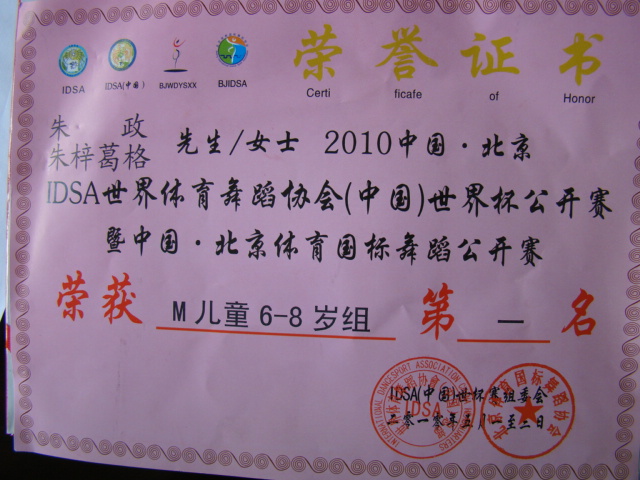 IDSA IDSA(中国) BJWDYSXX BJIDSA
荣誉证书
Certi ficate of Honor
朱 政
朱梓葛格 先生/女士 2010中国·北京
IDSA世界体育舞蹈协会(中国)世界杯公开赛
暨中国·北京体育国标舞蹈公开赛
荣获 M儿童6-8岁组 第一名
IDSA(中国)世杯赛组委会
二〇一〇年五月一至二日